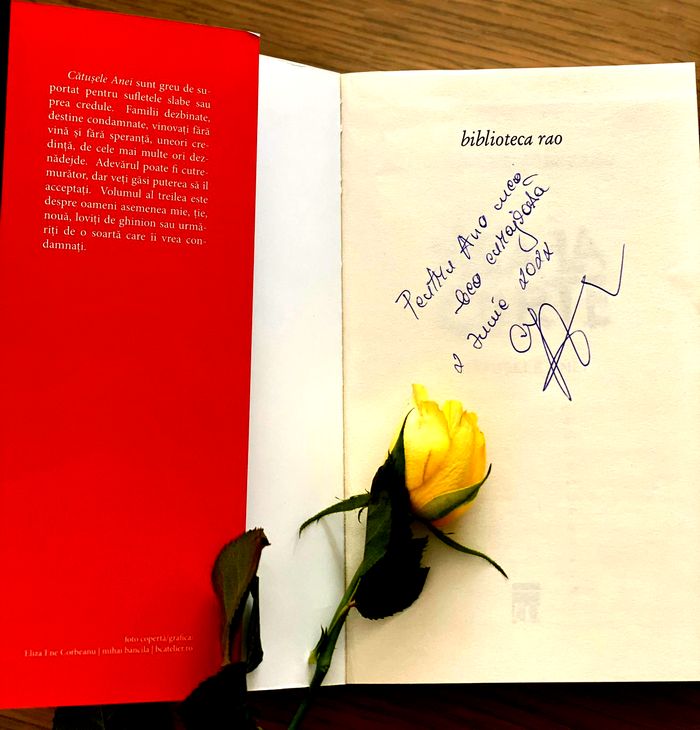 Cătușele Anei sunt greu de su-
portat pentru sufletele slabe sau
prea credule. Familii dezbinate,
destine condamnate, vinovați fără
vină și fără speranță, uneori cre-
dință, de cele mai multe ori dez-
nădejde. Adevărul poate fi cutre-
murător, dar veți găsi puterea să îl
acceptați. Volumul al treilea este
despre oameni asemenea mie, ție,
nouă, loviți de ghinion sau urmă-
riți de o soartă care îi vrea con-
damnați.
foto coperta/grafica:
Eliza Ene Corbeanu | mihai bancila | bcatelier.ro
biblioteca rao
Pentru Ana mea
cea curajoasă
2 Iunie 2022